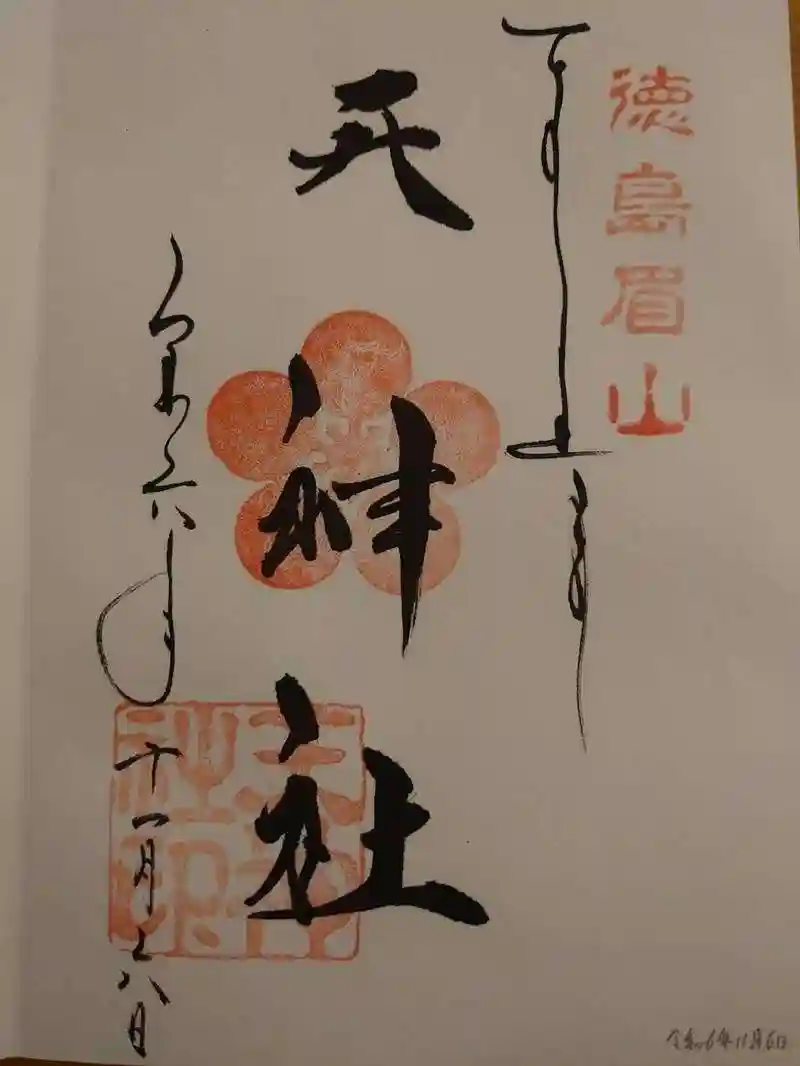 徳島眉山
天神社
令和六年
十一月六日
天神社印
令和6年11月6日